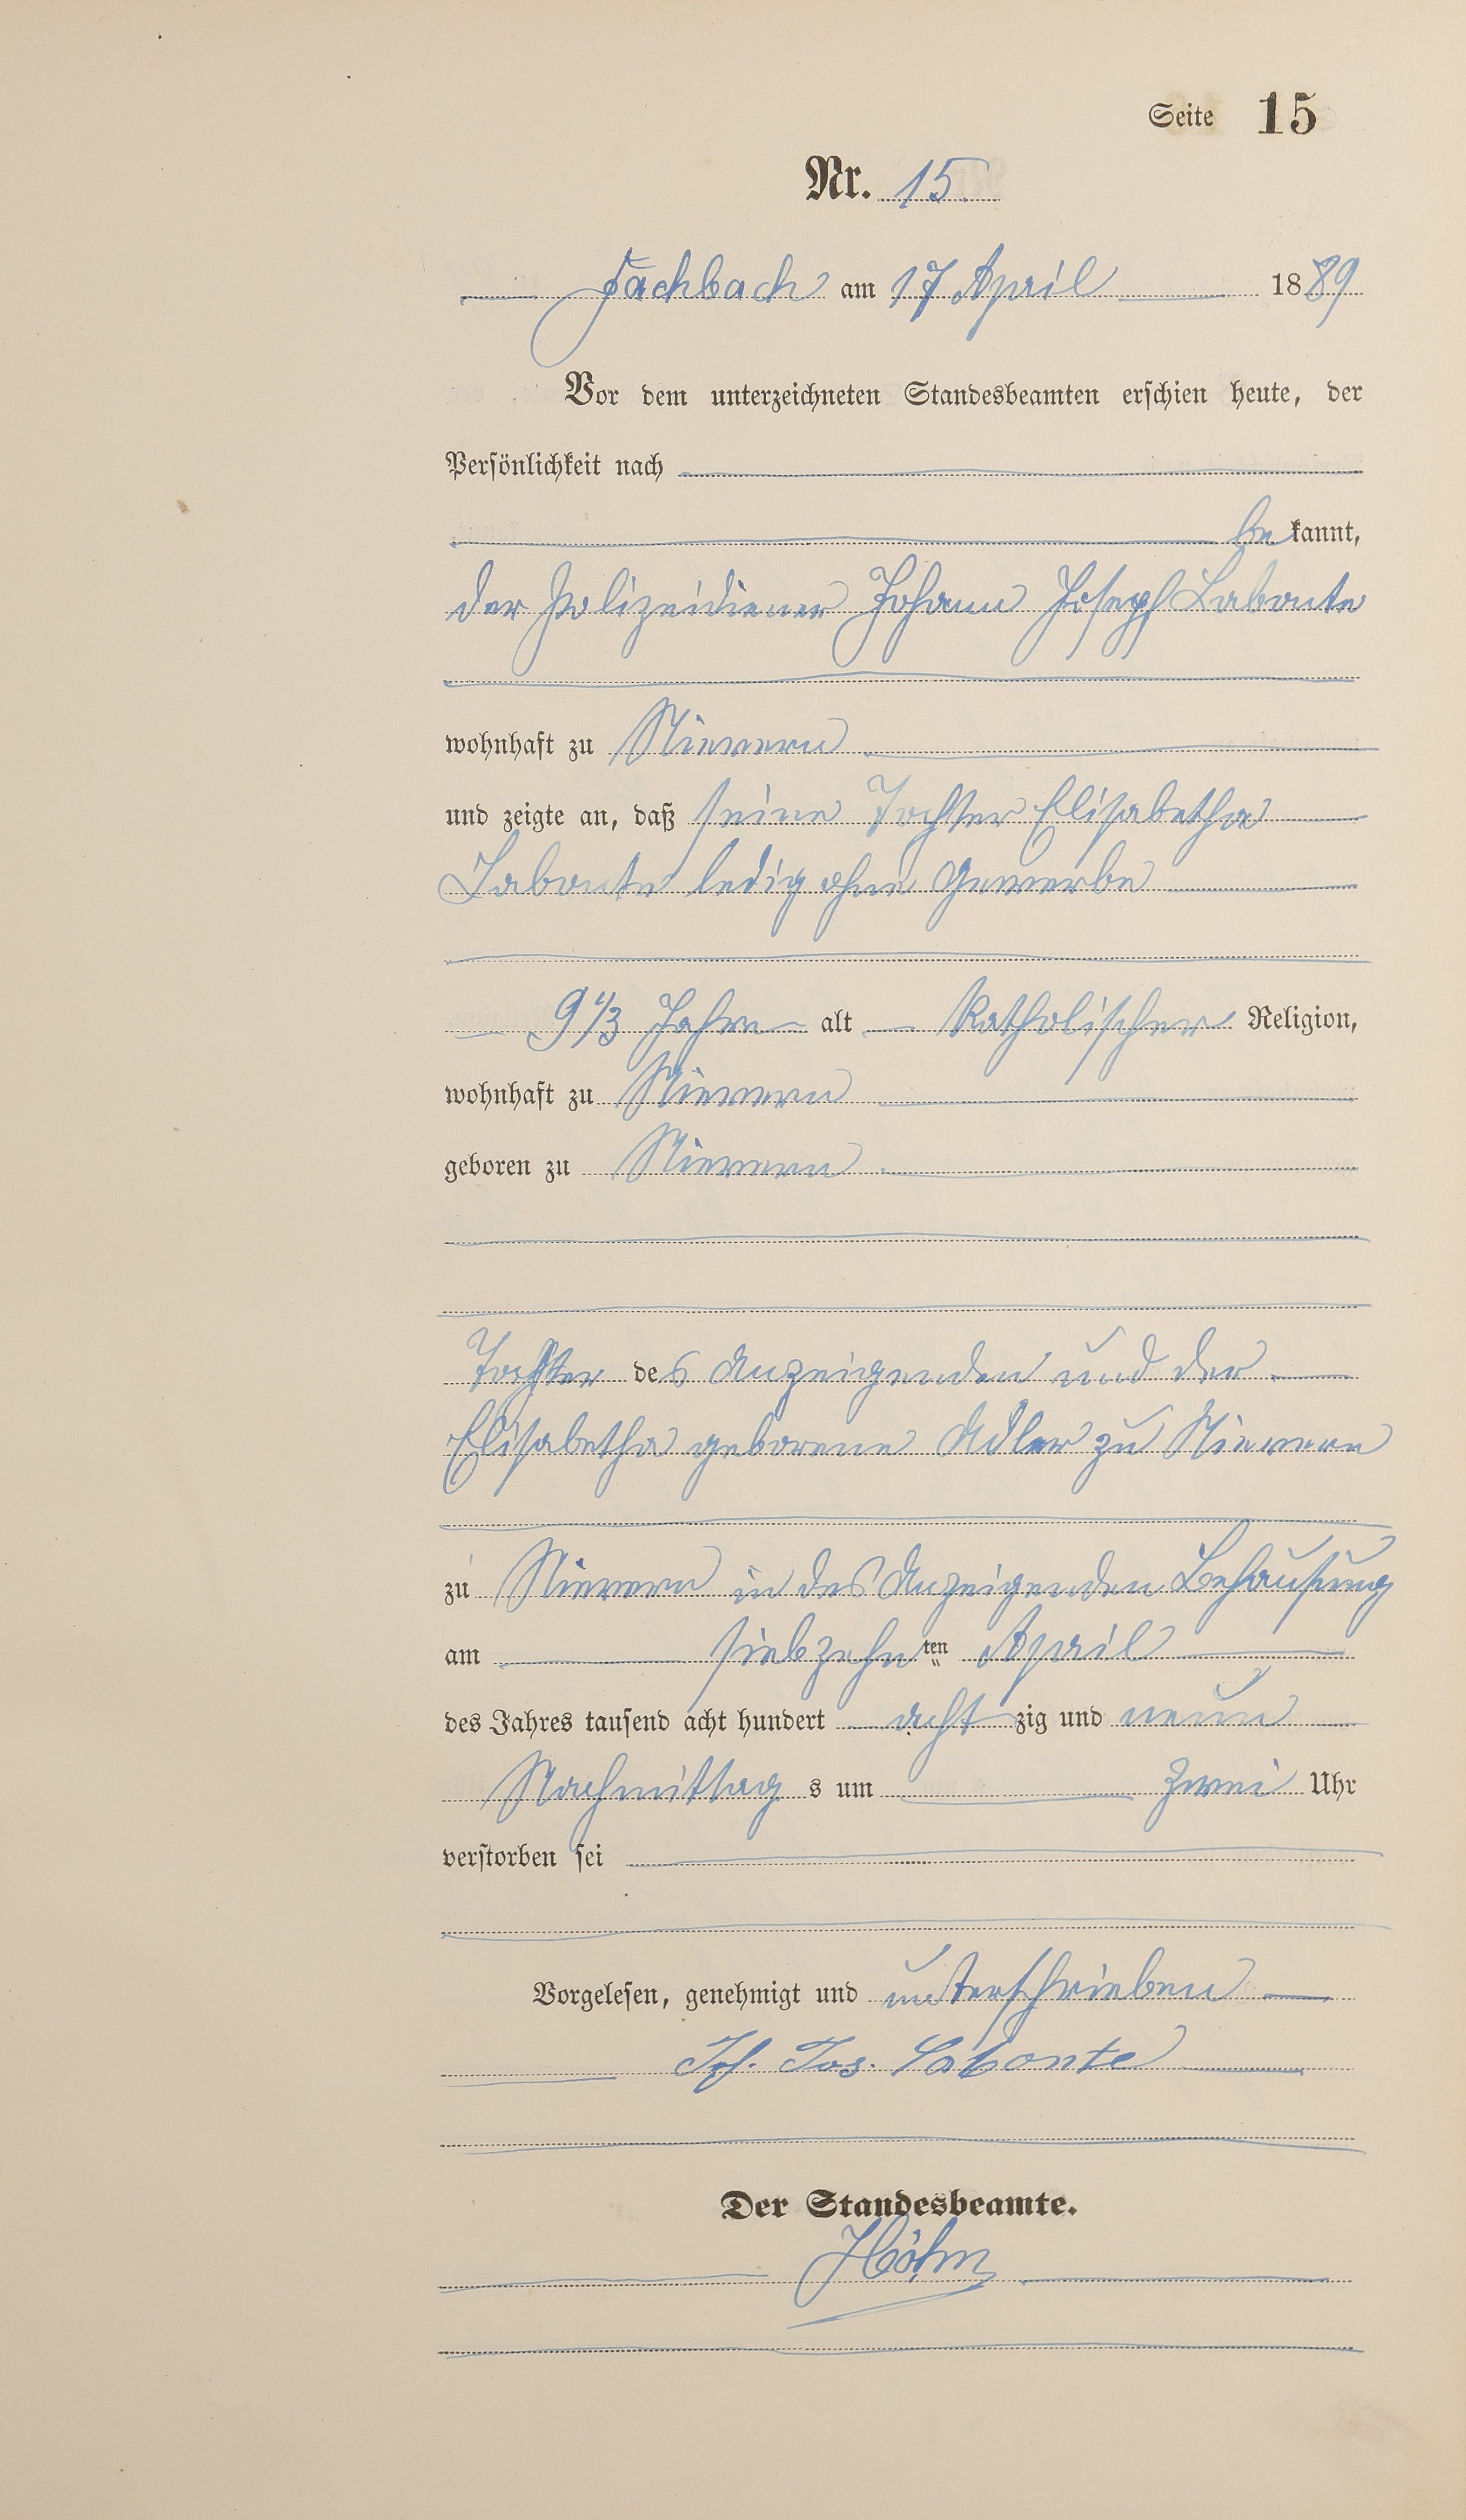 Seite 15
Nr. 15
Fachbach am 17 April 1889
Vor dem unterzeichneten Standesbeamten erschien heute, der
Persönlichkeit nach
be kannt,
der Polizeidiener Johann Joseph Labonte
wohnhaft zu Nievern
und zeigte an, daß seine Tochter Elisabetha
Labonte ledig ohne Gewerbe
9 1/3 Jahre alt Katholischer Religion,
wohnhaft zu Nievern
geboren zu Nievern
Tochter des Anzeigenden und der
Elisabetha geborene Adler zu Nievern
zu Nievern in des Anzeigenden Behausung
am siebzehnten April
des Jahres tausend acht hundert acht zig und neun
Nachmittag s um zwei Uhr
verstorben sei
Vorgelesen, genehmigt und unterschrieben
Joh. Jos. Labonte
Der Standesbeamte.
Höhn